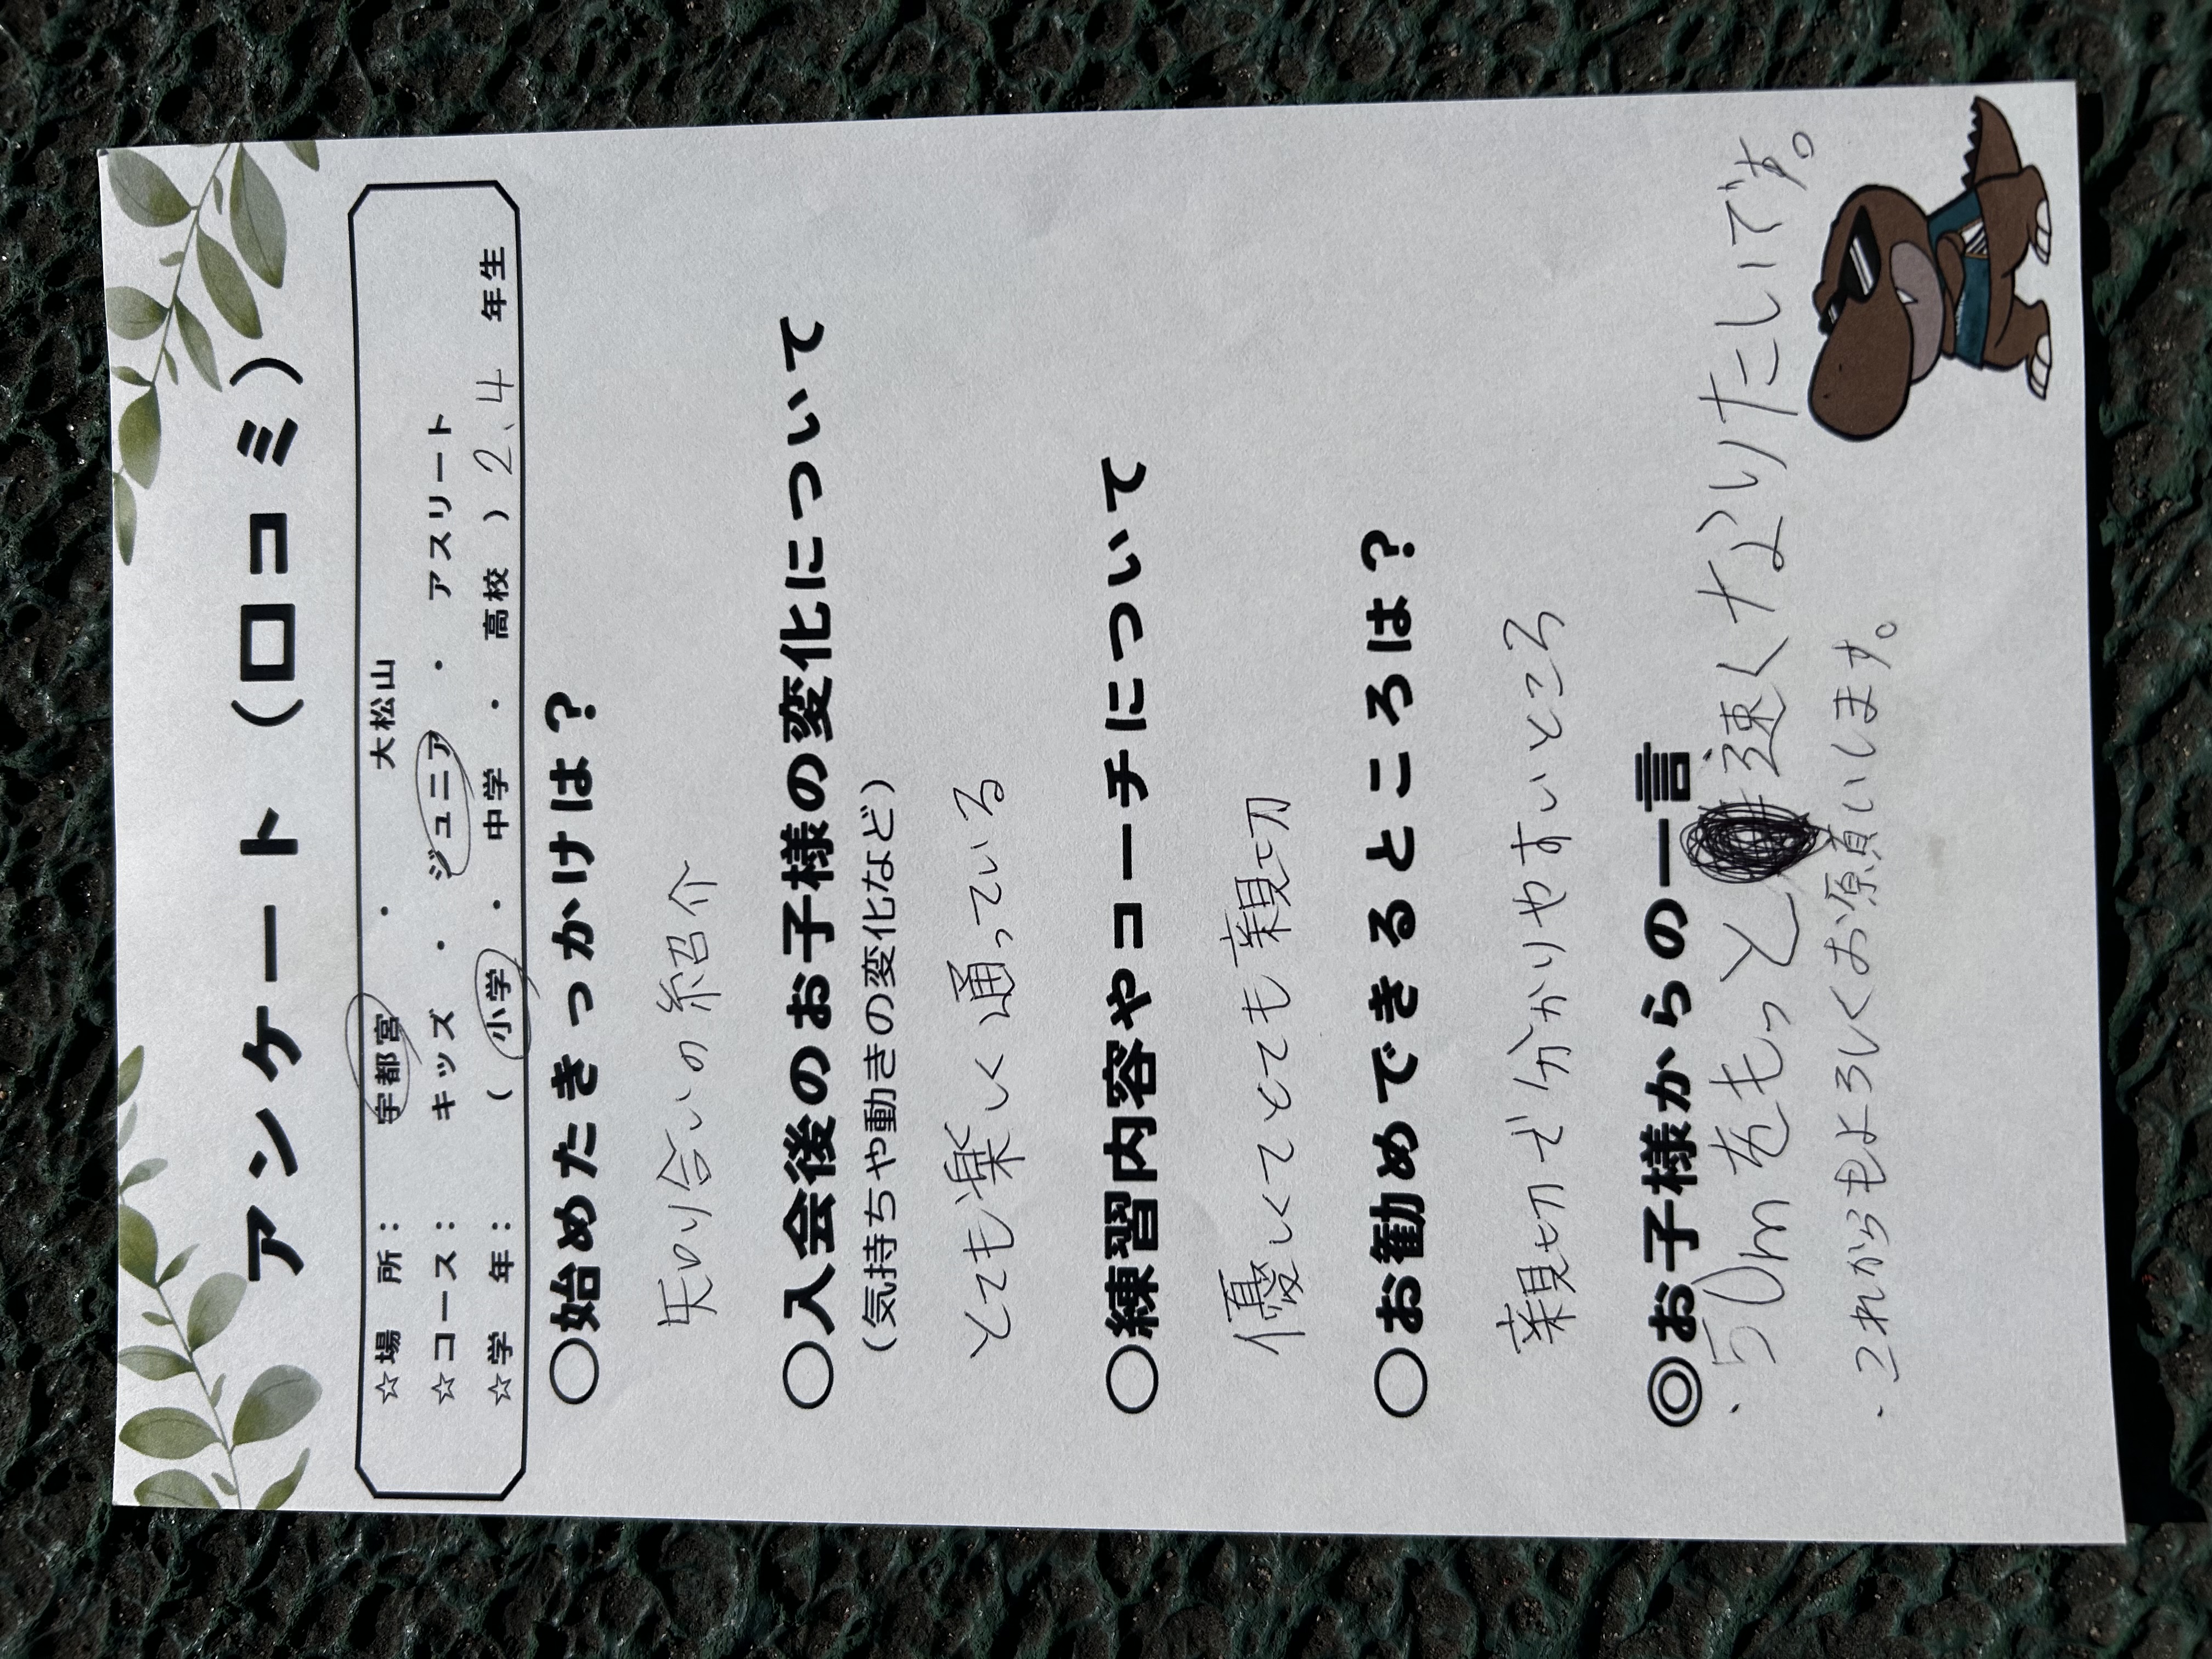 アンケート（口コミ）
☆場　所：　宇都宮　・　大松山
☆コース：　キッズ　・　ジュニア　・　アスリート
☆学　年：　（　小学　・　中学　・　高校　）2、4　年生
○始めたきっかけは？
知り合いの紹介
○入会後のお子様の変化について
（気持ちや動きの変化など）
とても楽しく通っている
○練習内容やコーチについて
優しくてとても親切
○お勧めできるところは？
親切で分かりやすいところ
◎お子様からの一言
・50mをもっと速くなりたいです。
・これからもよろしくお願いします。